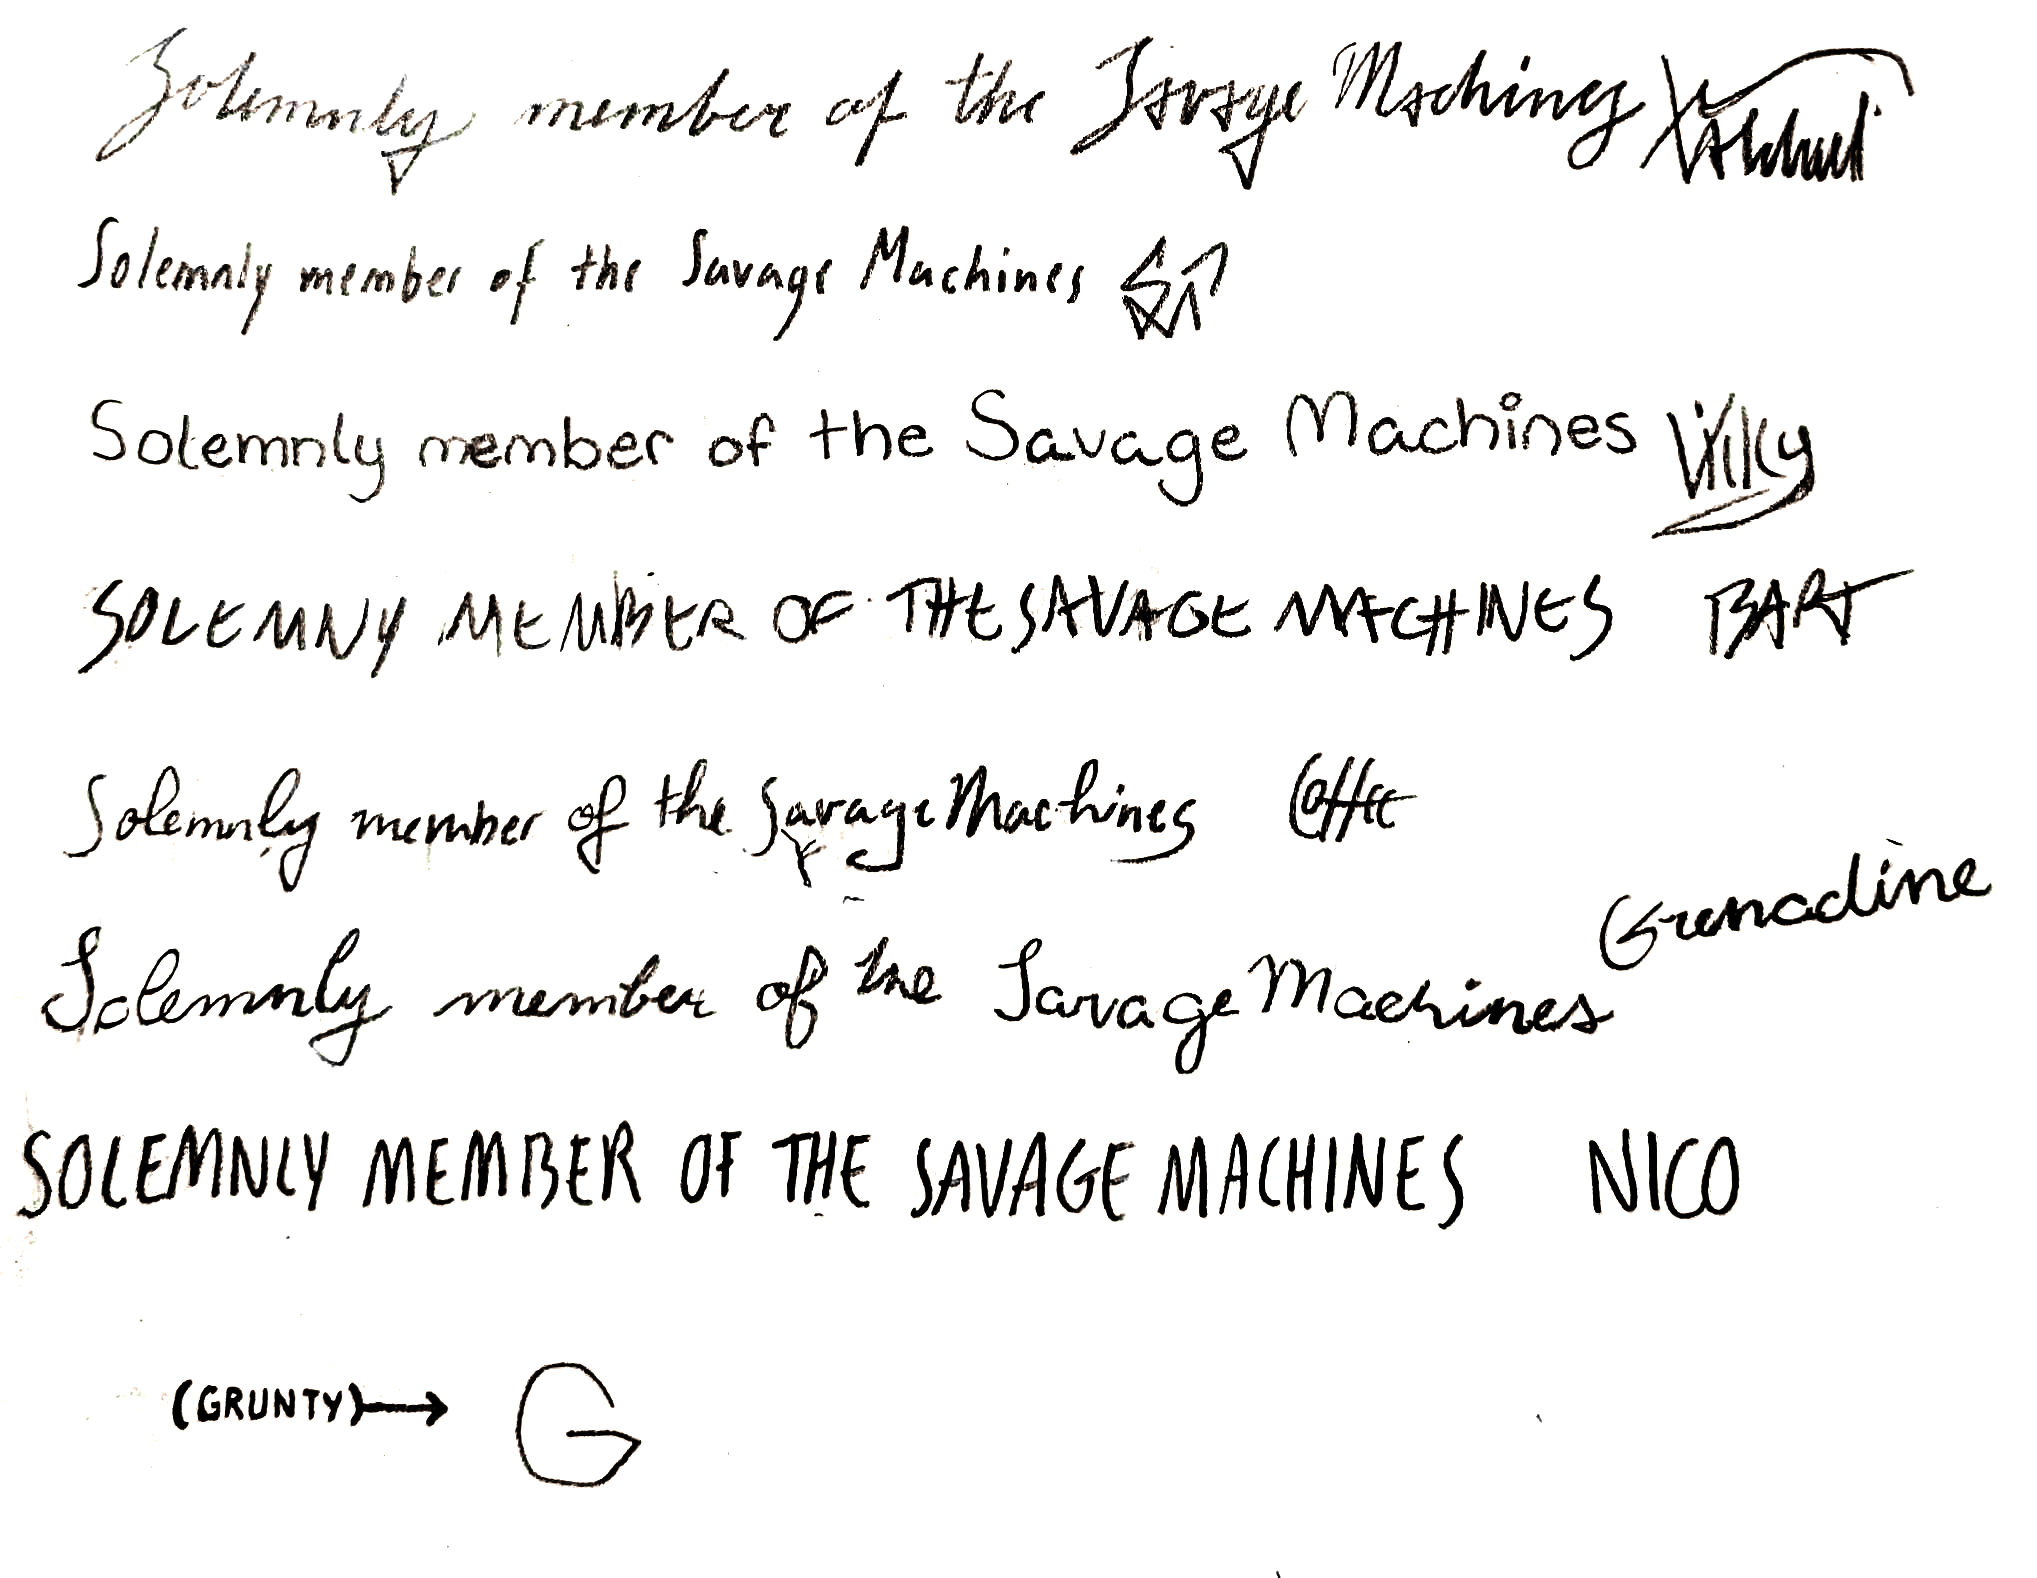 Solemnly member of the Savage Machines
Solemnly member of the Savage Machines
Solemnly member of the Savage Machines Vilky
SOLEMNY MEMBER OF THE SAVAGE MACHINES BART
Solemnly member of the Savage Machines Coffee
Grenadine
Solemnly member of the Savage Machines
SOLEMNLY MEMBER OF THE SAVAGE MACHINES NICO
(GRUNTY)→ G